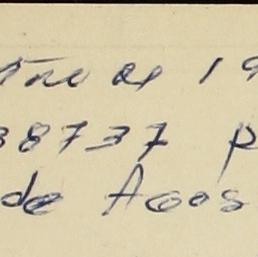 de 19
38737 p
de Agos